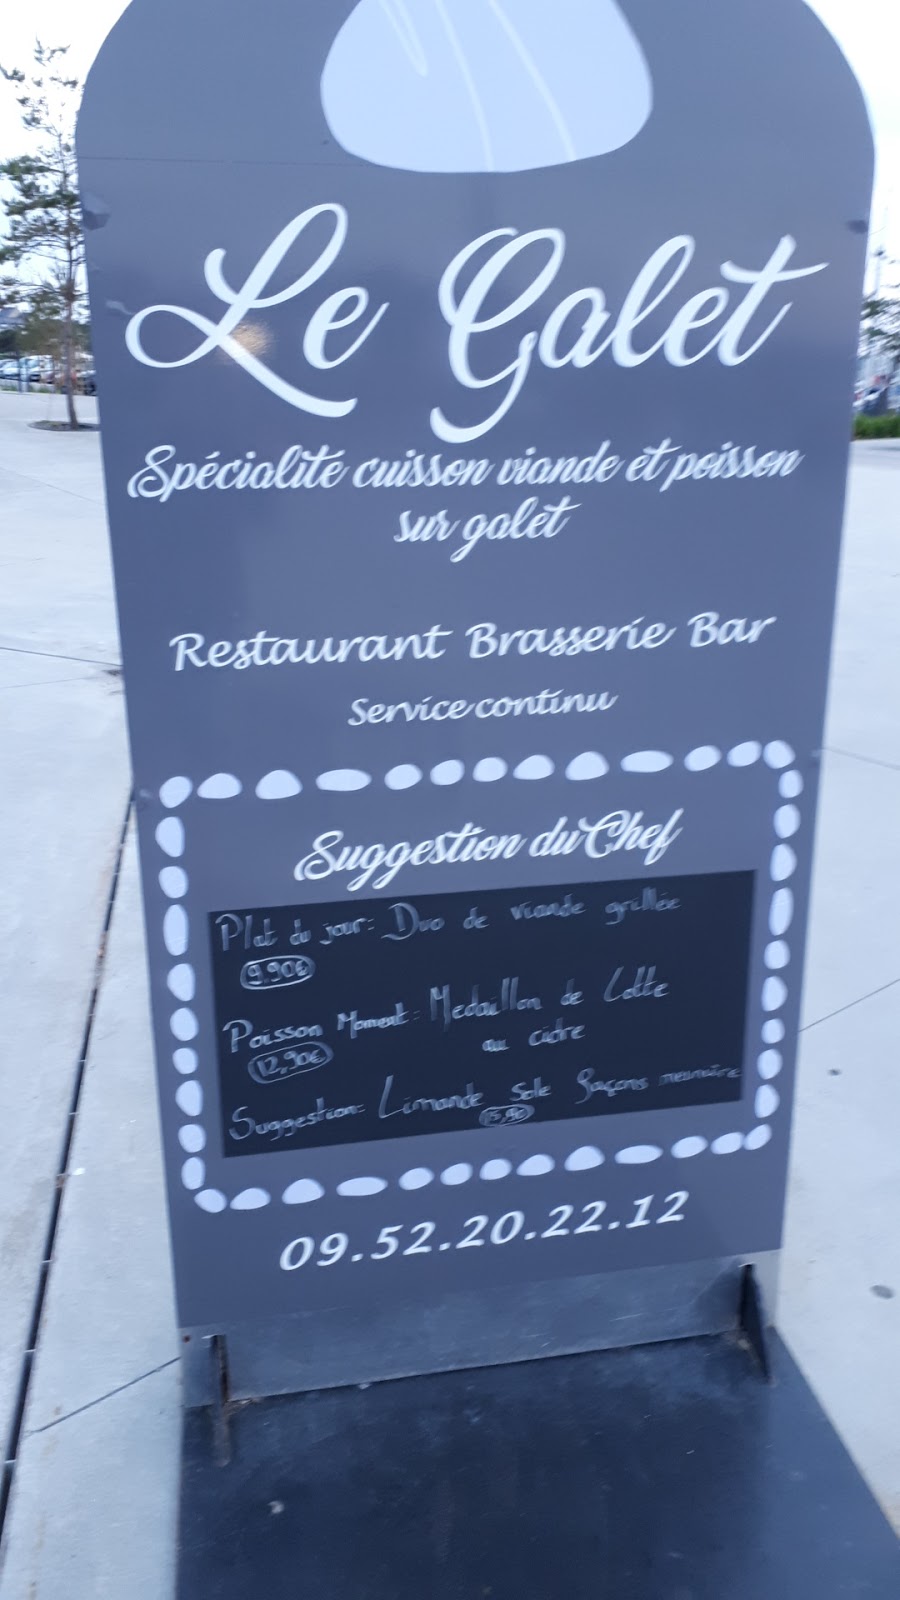 Le Galet
Spécialité cuisson viande et poisson
sur galet
Restaurant Brasserie Bar
Service continu
Suggestion du Chef
Plat du jour: Duo de viande grillée
9,90€
Poisson Moment: Medaillon de Lotte
12,90€ au cidre
Suggestion: Limande Sole façons meunière
15,90
09.52.20.22.12